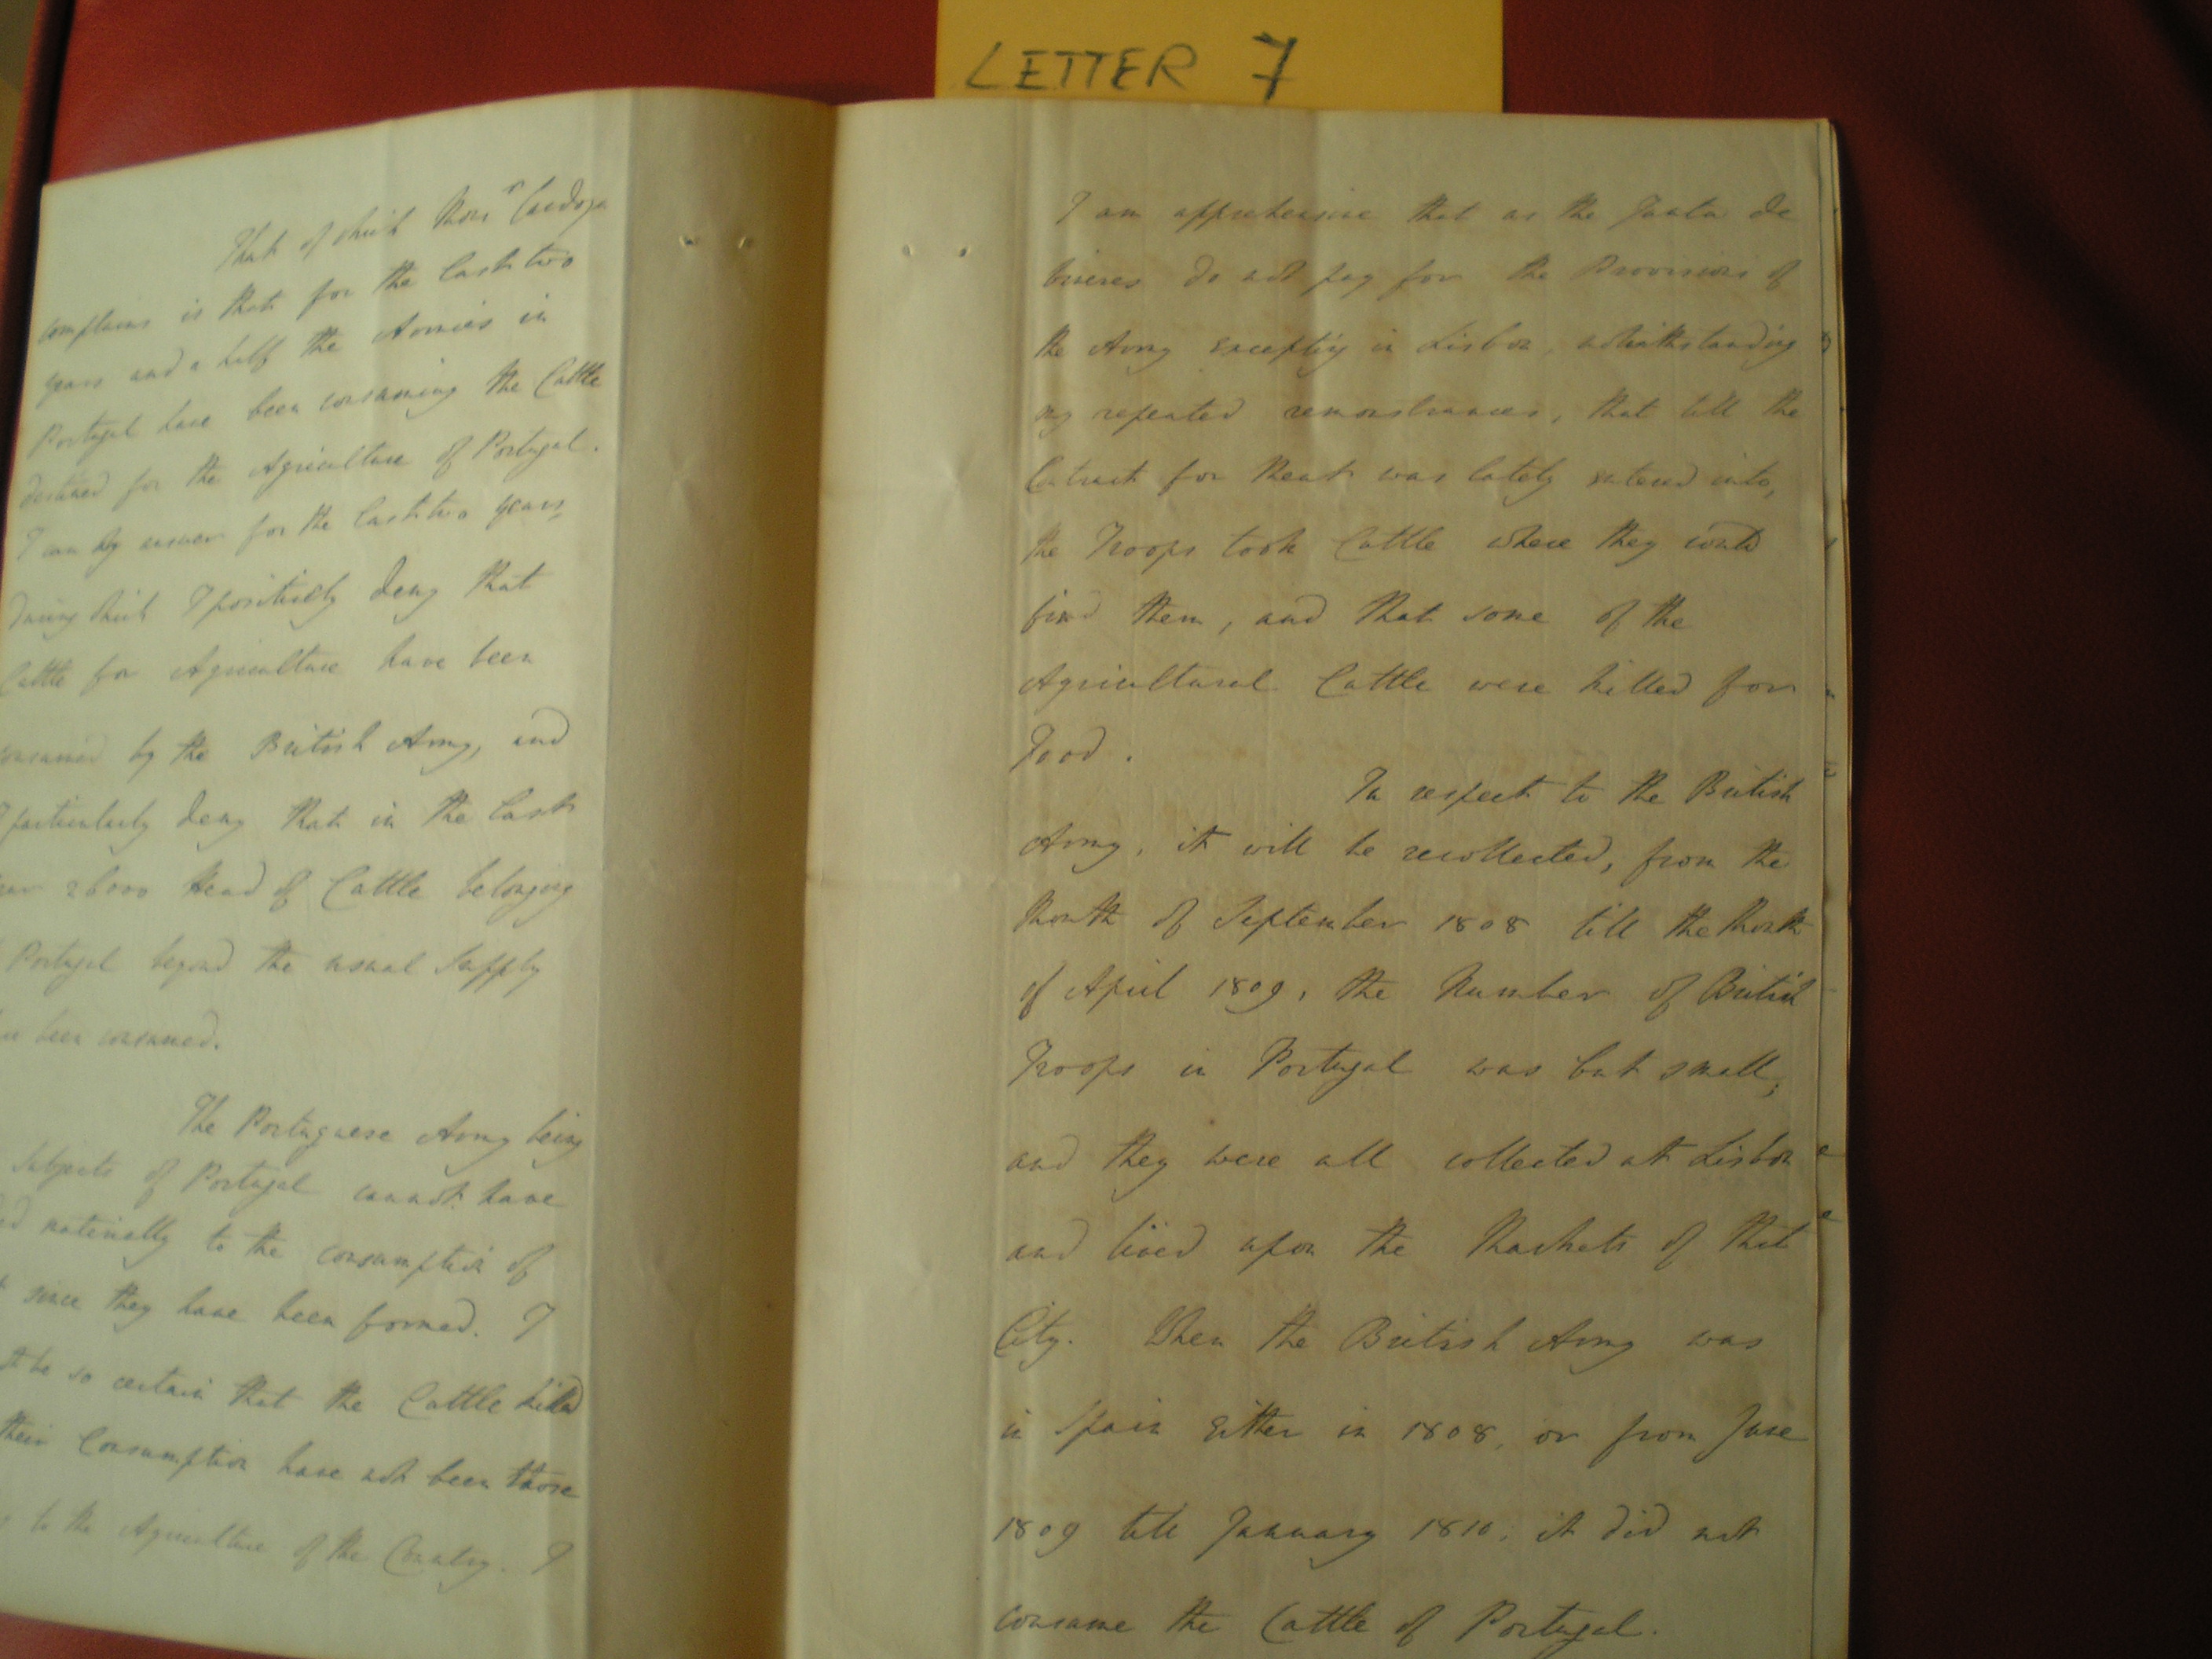 LETTER 7
That of which Monr Cardoza
complains is that for the last two
years and a half the Armies in
Portugal have been consuming the Cattle
destined for the Agriculture of Portugal.
I can only answer for the last two years
during which I positively deny that
Cattle for Agriculture have been
consumed by the British Army, and
I particularly deny that in the last
26000 Head of Cattle belonging
Portugal beyond the usual Supply
been consumed.
The Portuguese Army being
Subjects of Portugal cannot have
materially to the consumption of
since they have been formed. I
be so certain that the Cattle killed
their Consumption have not been those
to the Agriculture of the Country. I
I am apprehensive that as the Junta de
Viveres do not pay for the Provisions of
the Army excepting in Lisbon, notwithstanding
my repeated remonstrances, that till the
Contract for Meat was lately entered into,
the Troops took Cattle where they could
find them, and that some of the
Agricultural Cattle were killed for
Food.
In respect to the British
Army, it will be recollected, from the
Month of September 1808 till the Month
of April 1809, the Number of British
Troops in Portugal was but small;
and they were all collected at Lisbon
and lived upon the Markets of that
City. When the British Army was
in Spain either in 1808, or from June
1809 till January 1810, it did not
consume the Cattle of Portugal.